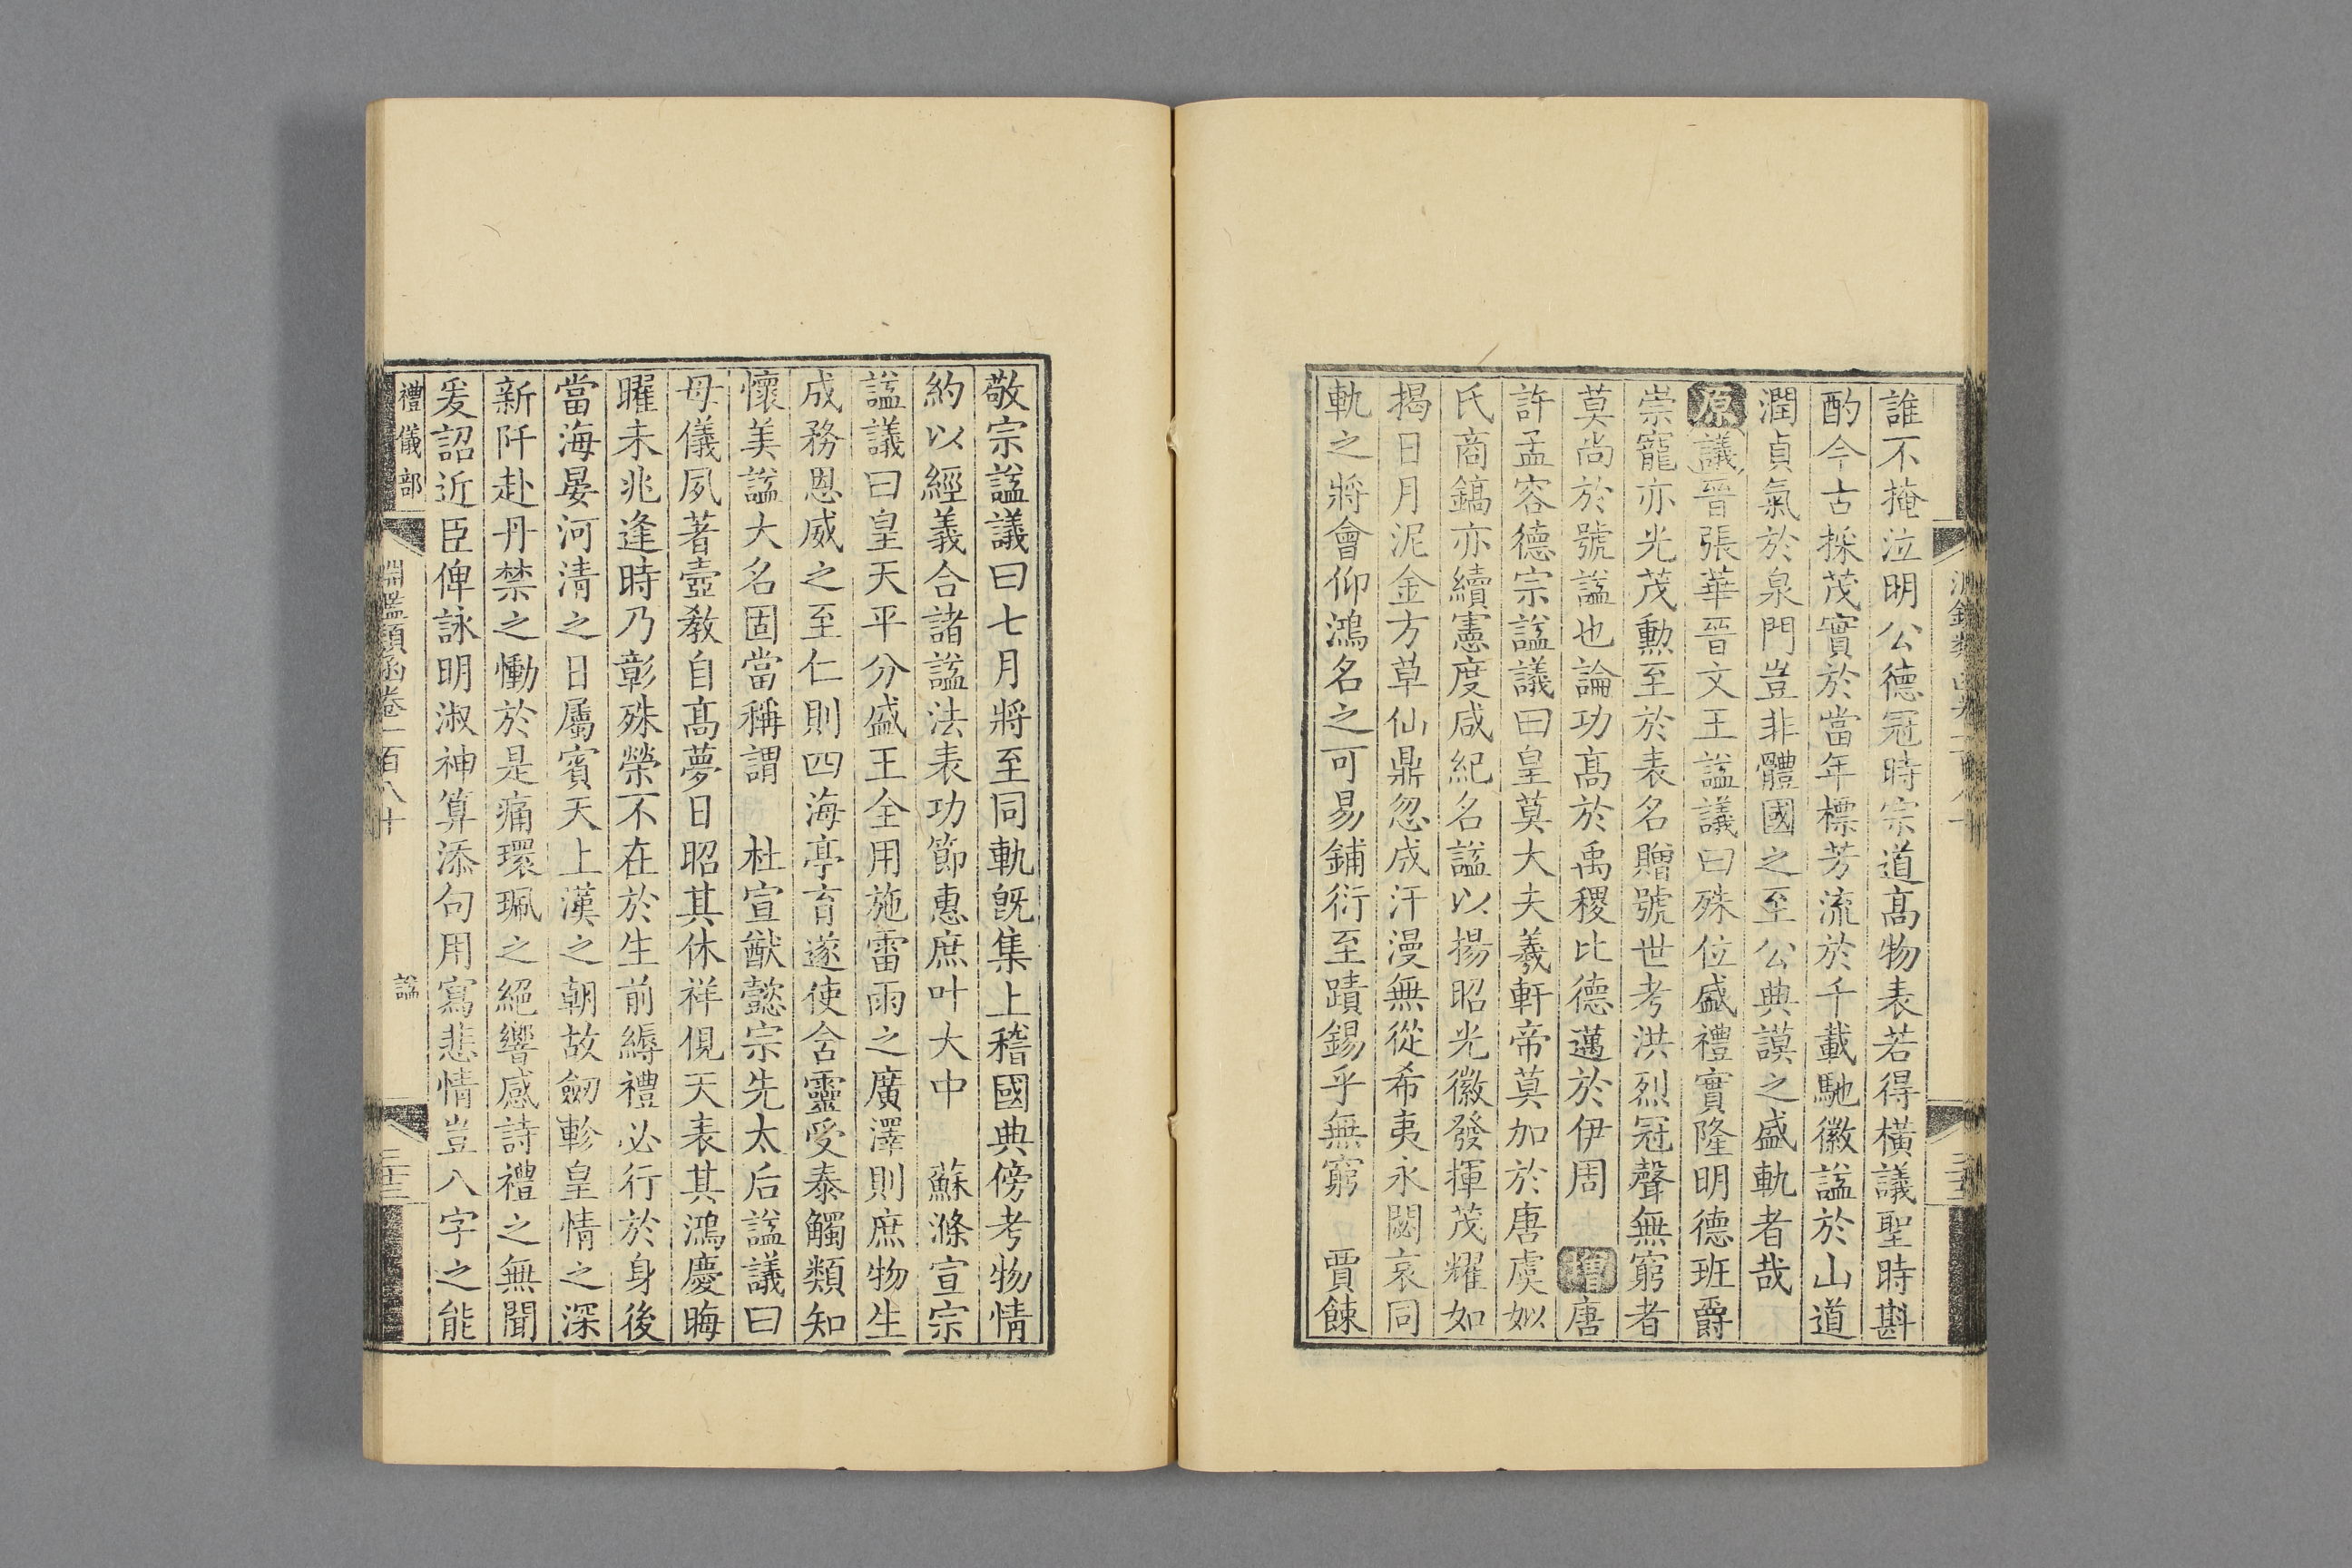 誰不掩泣明公德冠時宗道高物表若得橫議聖時斟
酌今古採茂實於當年標芳流於千載馳徽謚於山道
潤貞氣於泉門豈非體國之至公典謨之盛軌者哉
原議晉張華晉文王謚議曰殊位盛禮實隆明德班爵
崇寵亦光茂勲至於表名贈號世考洪烈冠聲無窮者
莫尚於號謚也論功高於禹稷比德邁於伊周 增唐
許孟容德宗謚議曰皇莫大夫羲軒帝莫加於唐虞姒
氏商鎬亦續憲度咸紀名謚以揚昭光徽發揮茂耀如
揭日月泥金方草仙鼎忽成汗漫無從希夷永閟哀同
軌之將會仰鴻名之可易鋪衍至蹟錫乎無窮 賈餗
敬宗謚議曰七月將至同軌旣集上稽國典傍考物情
約以經義合諸謚法表功節惠庶叶大中 蘇滌宣宗
謚議曰皇天平分盛王全用施雷雨之廣澤則庶物生
成務恩威之至仁則四海亭育遂使含靈受泰觸類知
懷美謚大名固當稱謂 杜宣猷懿宗先太后謚議曰
母儀夙著壼教自高夢日昭其休祥俔天表其鴻慶晦
曜未兆逢時乃彰殊榮不在於生前縟禮必行於身後
當海晏河清之日屬賓天上漢之朝故劒軫皇情之深
新阡赴丹禁之慟於是痛環珮之絕響感詩禮之無聞
爰詔近臣俾詠明淑神算添句用寫悲情豈八字之能
禮儀部 淵鑑類函卷一百八十 謚 三十三